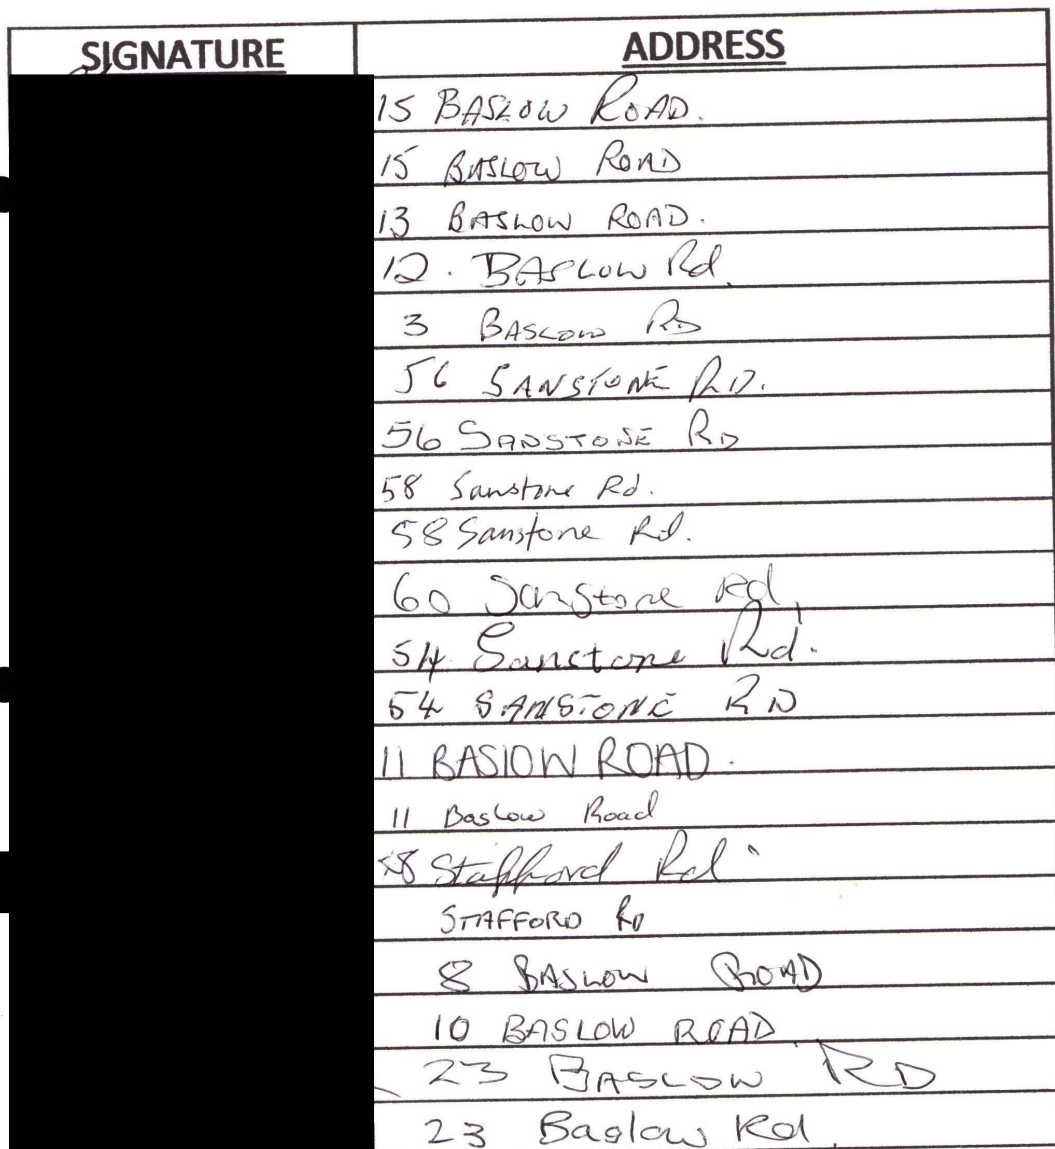 SIGNATURE ADDRESS
15 BASLOW ROAD.
15 BASLOW ROAD
13 BASLOW ROAD.
12. BASLOW Rd.
3 BASLOW RD
56 SANSTONE RD.
56 SANSTONE RD
58 Sanstone Rd.
58 Sanstone Rd.
60 Sanstone Rd,
54 Sanstone Rd.
54 SANSTONE RD
11 BASlOW ROAD.
11 Baslow Road
Stafford Rd
STAFFORD RD
8 BASLOW ROAD
10 BASLOW ROAD
23 BASLOW RD
23 Baslow Rd.